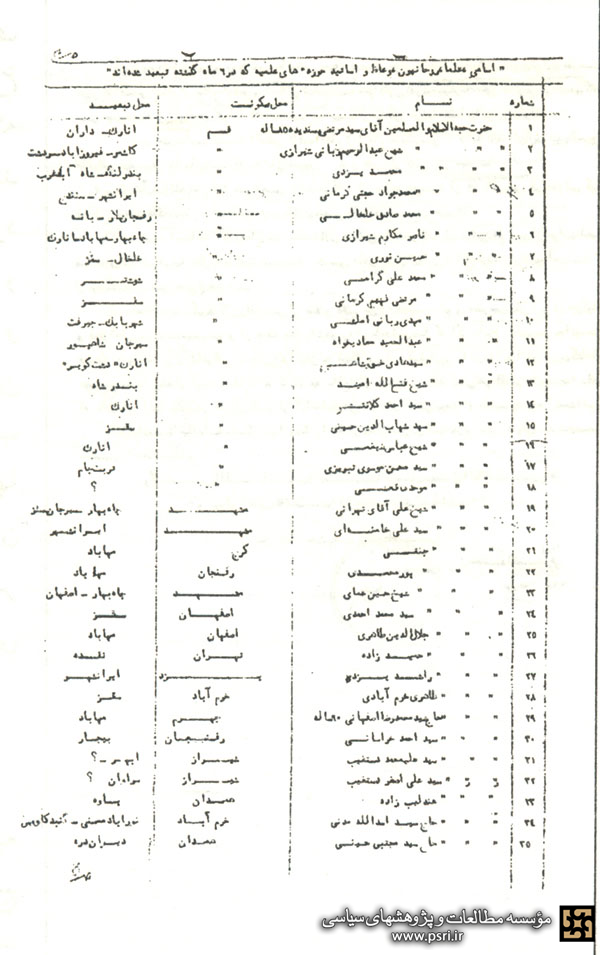 " اسامی علما و روحانیون و وعاظ و اساتید حوزه های علمیه که در ۶ ماه گذشته تبعید شده‌اند "
شماره نام محل سکونت محل تبعید
۱ حضرت حجةالاسلام والمسلمین آقای سید مرتضی پسندیده ۸۵ ساله قم انارک - داران
۲ " " " شیخ عبدالرحیم ربانی شیرازی " کاشمر - فیروزآباد - سردشت
۳ " " " محمد یزدی " بندرلنگه
۴ " " " محمدجواد حجتی کرمانی " ایرانشهر - سنندج
۵ " " " محمد صادق خلخالی " بانه
۶ " " " ناصر مکارم شیرازی " چاه‌بهار - مهاباد - انارک
۷ " " " حسین نوری " خلخال - سقز
۸ " " " محمد علی گرامی " شوشتر
۹ " " " مرتضی فهیم کرمانی " سقز
۱۰ " " " مهدی ربانی املشی " شهربابک - جیرفت
۱۱ " " " عبدالمجید معادیخواه " سیرجان
۱۲ " " " سید هادی خسروشاهی " انارک
۱۳ " " " شیخ فتح الله امید " بندر شاه
۱۴ " " " سید احمد کلانتر " انارک
۱۵ " " " سید شهاب الدین حسینی " سقز
۱۶ " " " شیخ عباس " انارک
۱۷ " " " سید محسن موسوی تبریزی " تربتجام
۱۸ " " " موحدی قمی " ؟
۱۹ " " " شیخ علی آقای تهرانی مشهد چاه‌بهار - سیرجان - سقز
۲۰ " " " سید علی خامنه‌ای مشهد ایرانشهر
۲۱ " " " کرج مهاباد
۲۲ " " " پورمحمدی رفسنجان مهاباد
۲۳ " " " شیخ حسین عمادی مشهد چاه‌بهار - اصفهان
۲۴ " " " سید محمد احمدی اصفهان سقز
۲۵ " " " جلال الدین طاهری اصفهان مهاباد
۲۶ " " " زاده تهران نقده
۲۷ " " " راشد یزدی یزد ایرانشهر
۲۸ " " " طاهری خرم آبادی خرم آباد سقز
۲۹ " " " حاج سید محمدرضا اصفهانی ۸۰ ساله جهرم مهاباد
۳۰ " " " سید احمد خراسانی رفسنجان بیجار
۳۱ " " " سید علیمحمد دستغیب شیراز ابهر - ؟
۳۲ " " " سید علی اصغر دستغیب شیراز سراوان ؟
۳۳ " " " عندلیب زاده همدان پاوه
۳۴ " " " حاج سید اسدالله مدنی خرم آباد نورآباد ممسنی - گنبدکاوس
۳۵ " " " حاج سید مجتبی همدان دیواندره
مؤسسه مطالعات و پژوهشهای سیاسی
www.psri.ir